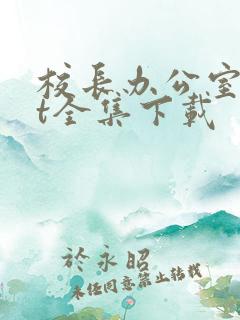 校长办公室
t全集下载
於永昭
未经同意禁止转载